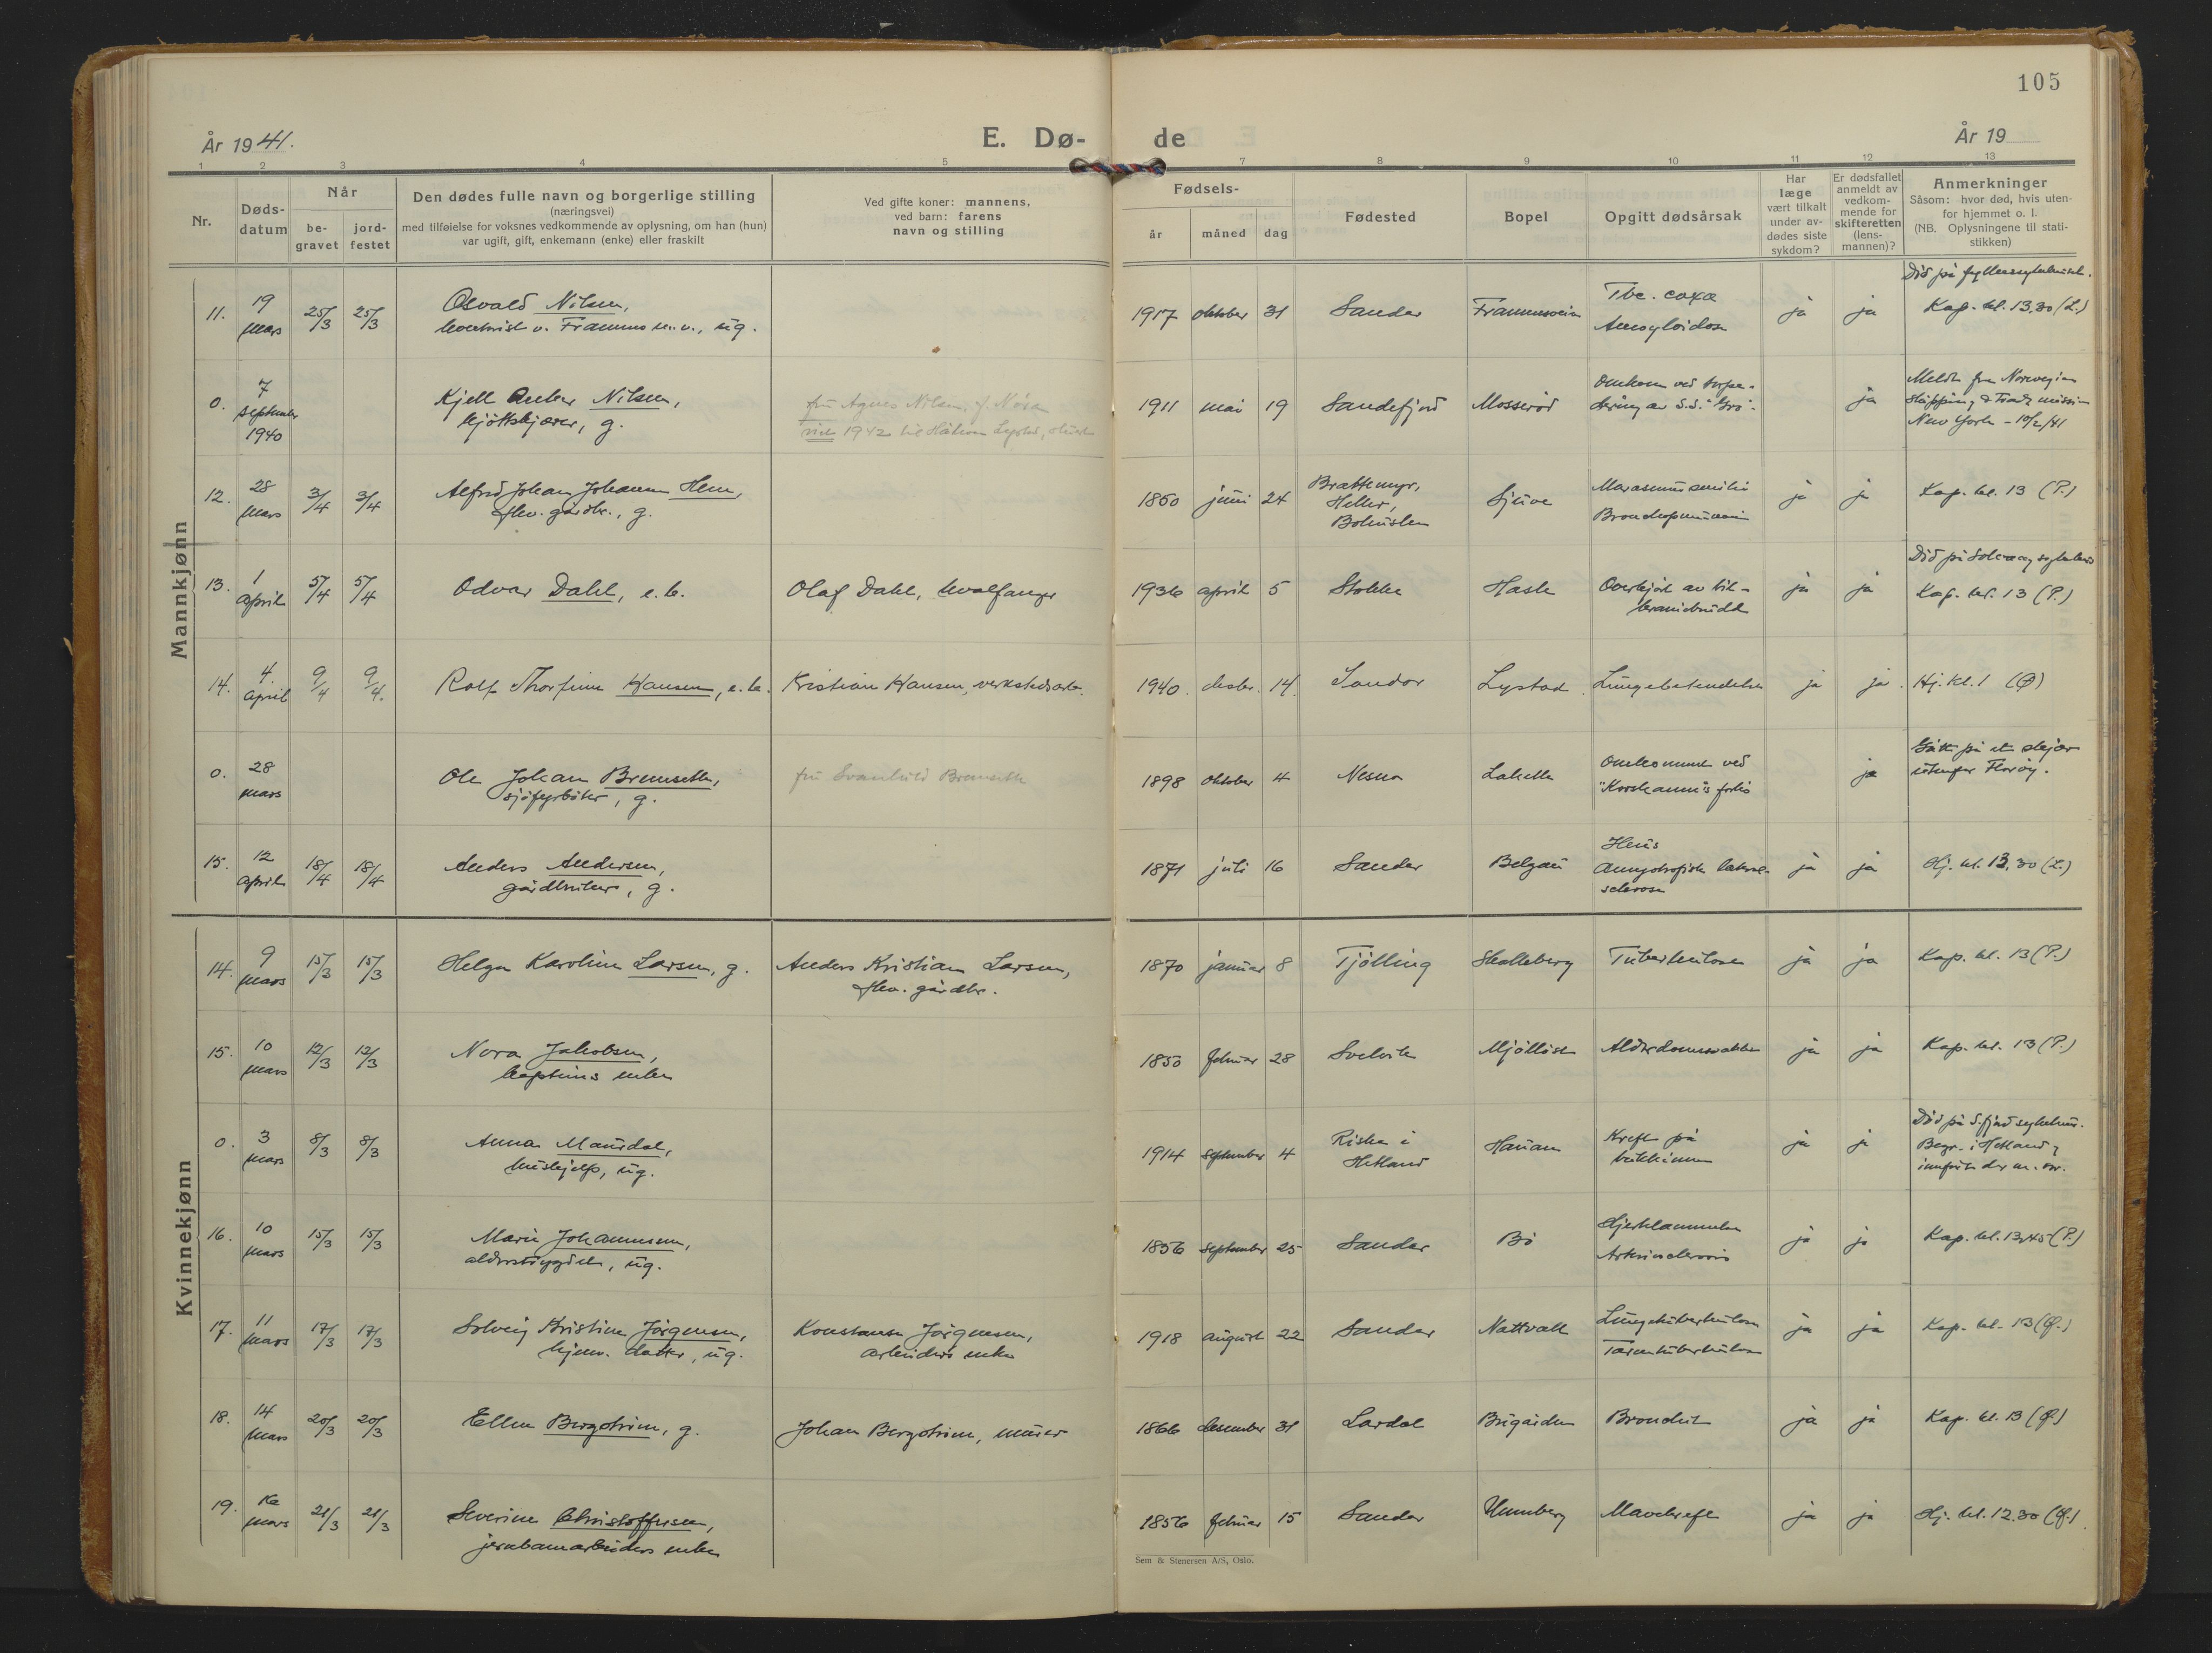 105
År 1941.
E. Dø-
de
År 19
1 2 3 4 5 7 8 9 10 11 12 13
Nr.
Døds-
datum
Når
be-
gravet
jord-
festet
Den dødes fulle navn og borgerlige stilling
(næringsvei)
med tilføielse for voksnes vedkommende av oplysning, om han (hun)
var ugift, gift, enkemann (enke) eller fraskilt
Ved gifte koner: mannens,
ved barn: farens
navn og stilling
Fødsels-
år måned dag
Fødested
Bopel
Opgitt dødsårsak
Har
læge
vært tilkalt
under av-
dødes siste
sykdom?
Er dødsfallet
anmeldt av
vedkom-
mende for
skifteretten
(lens-
mannen)?
Anmerkninger
Såsom: hvor død, hvis uten-
for hjemmet o. l.
(NB. Oplysningene til stati-
stikken)
Mannkjønn
11. 19 mars 25/3 25/3 Osvald Nilsen,
v. Framnes m.v., ug.
1917 oktober 31 Sandar Framnesveien Tbc. coxa
Amyloidose
ja ja Død på fylkessykehuset.
Kap. kl. 13,30 (L.)
0. 7 september 1940 Kjell Anker Nilsen,
kjøttskjærer, g.
fru Agnes Nilsen, f. Nøsen
viet 1942 til Håkon Lystad,
1911 mai 19 Sandefjord Mosserød Omkom ved torpe-
dering av S.S. "Gro".
ja Meldt fra Norwegian
Shipping & Trade mission
New York - 10/2/41
12. 28 mars 3/4 3/4 Alfred Johan Johansen Hem,
fhv. gårdbr., g.
1860 juni 24 Brattemyr,
Heller,
Bohuslen
Sjuve Marasmus senilis
Bronchopneumoni
ja ja Kap. kl. 13 (P.)
13. 1 april 5/4 5/4 Odvar Dahl, e. b. Olaf Dahl, hvalfanger
1936 april 5 Stokke Hasle Overkjørt av bil -
kraniebrudd
ja ja Død på Solvang sykehus
Kap. kl. 13 (P.)
14. 4. april 9/4 9/4. Rolf Thorfinn Hansen, e. b. Kristian Hansen, verkstedsarb.
1940. desbr. 14. Sandar Lystad. Lungebetendelse ja ja. Hj. kl. 1 (Ø)
0. 28 mars Ole Johan Bremseth,
sjøfyrbøter, g.
fru Svanhild Bremseth
1898 oktober 4 Nesna Lahelle Omkommet ved
"Korshamn"s forlis
ja Gått på et skjær
utenfor Florøy.
15. 12 april 18/4 18/4 Anders Andersen,
gårdbruker, g.
1871 juli 16 Sandar Belgau Ileus
Amyotrofisk lateral-
sclerose
ja ja Hj. kl. 13,30 (L.)
Kvinnekjønn
14. 9 mars 15/3 15/3 Helga Karoline Larsen, g. Anders Kristian Larsen,
fhv. gårdbr.
1870 januar 8 Tjølling Skalleberg Tuberkulose ja ja Kap. kl. 13 (P.)
15. 10 mars 12/3 12/3 Nora Jakobsen,
kapteins enke
1850 februar 28 Svelvik Mjølløst Alderdomssvakhet ja ja Kap. kl. 13 (P.)
0. 3 mars 8/3 8/3 Anna Maudal,
hushjelp, ug.
1914 september 4 Riska i
Hetland
Hauan Kreft på
bukhinnen
ja ja Død på S.fjord sykehus.
Begr. i Hetland &
innført der m. nr.
16. 10 mars 15/3 15/3 Marie Johannessen,
alderstrygdet, ug.
1856 september 25 Sandar Bø Hjertelammelse
Arteriosclerosis
ja ja Kap. kl. 13,45 (P.)
17. 11 mars 17/3 17/3 Solveig Kristine Jørgensen,
hjemv. datter, ug.
Konstanse Jørgensen,
arbeiders enke
1918 august 22 Sandar Nattvall Lungetuberkulose
Tarmtuberkulose
ja ja Kap. kl. 13 (Ø.)
18. 14 mars 20/3 20/3 Ellen Bergstrøm, g. Johan Bergstrøm, murer
1866 desember 31 Lardal Brigården Bronchit ja ja Kap. kl. 13 (Ø.)
19. 16 mars 21/3 21/3 Severine Christoffersen,
jernbanearbeiders enke
1856 februar 15 Sandar Unneberg Mavekreft ja ja Hj. kl. 12.30 (Ø.)
Sem & Stenersen A/S, Oslo.